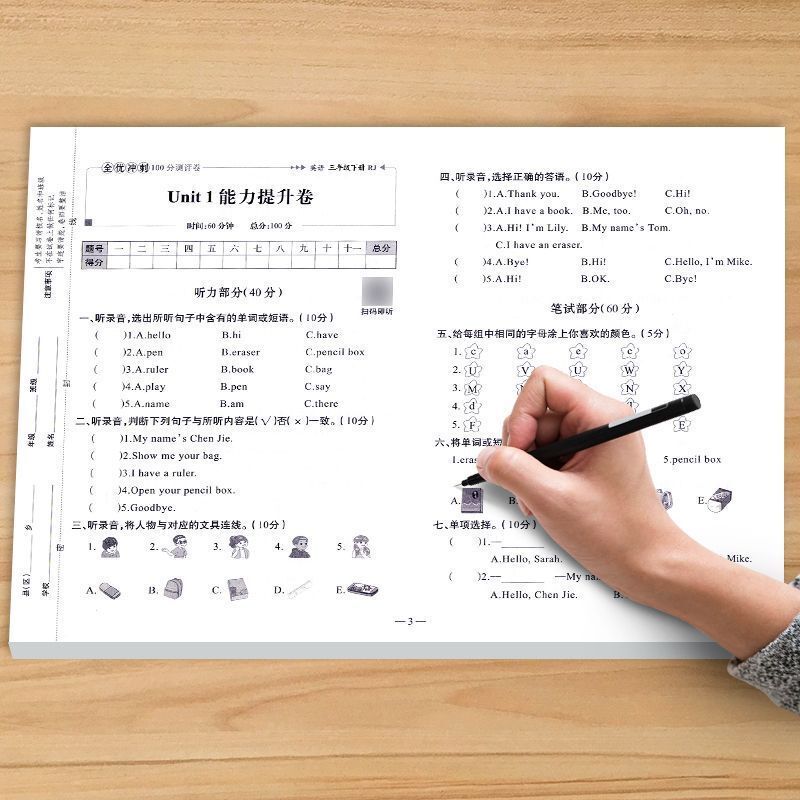 全优冲刺100分测评卷
英语 三年级下册 RJ
Unit 1 能力提升卷
时间:60分钟 总分:100分
题号 一 二 三 四 五 六 七 八 九 十 十一 总分
得分
听力部分(40分)
扫码即听
一、听录音,选出所听句子中含有的单词或短语。(10分)
( )1.A.hello B.hi C.have
( )2.A.pen B.eraser C.pencil box
( )3.A.ruler B.book C.bag
( )4.A.play B.pen C.say
( )5.A.name B.am C.there
二、听录音,判断下列句子与所听内容是(√)否(×)一致。(10分)
( )1.My name's Chen Jie.
( )2.Show me your bag.
( )3.I have a ruler.
( )4.Open your pencil box.
( )5.Goodbye.
三、听录音,将人物与对应的文具连线。(10分)
1. 2. 3. 4. 5.
A. B. C. D. E.
— 3 —
四、听录音,选择正确的答语。(10分)
( )1.A.Thank you. B.Goodbye! C.Hi!
( )2.A.I have a book. B.Me, too. C.Oh, no.
( )3.A.Hi! I'm Lily. B.My name's Tom.
C.I have an eraser.
( )4.A.Bye! B.Hi! C.Hello, I'm Mike.
( )5.A.Hi! B.OK. C.Bye!
笔试部分(60分)
五、给每组中相同的字母涂上你喜欢的颜色。(5分)
1. c a e c o
2. U V U W Y
3. M N N
4. d
5. F E
六、将单词或短
1.eras 5.pencil box
A. B E.
七、单项选择。(10分)
( )1.—
A.Hello, Sarah. Mike.
( )2.— —My na
A.Hello, Chen Jie. B.
考生要写清校名、姓名和班级
不在试卷上做任何标记
注意事项
县(区) 乡 年级 班级
学校 姓名
密 封 线